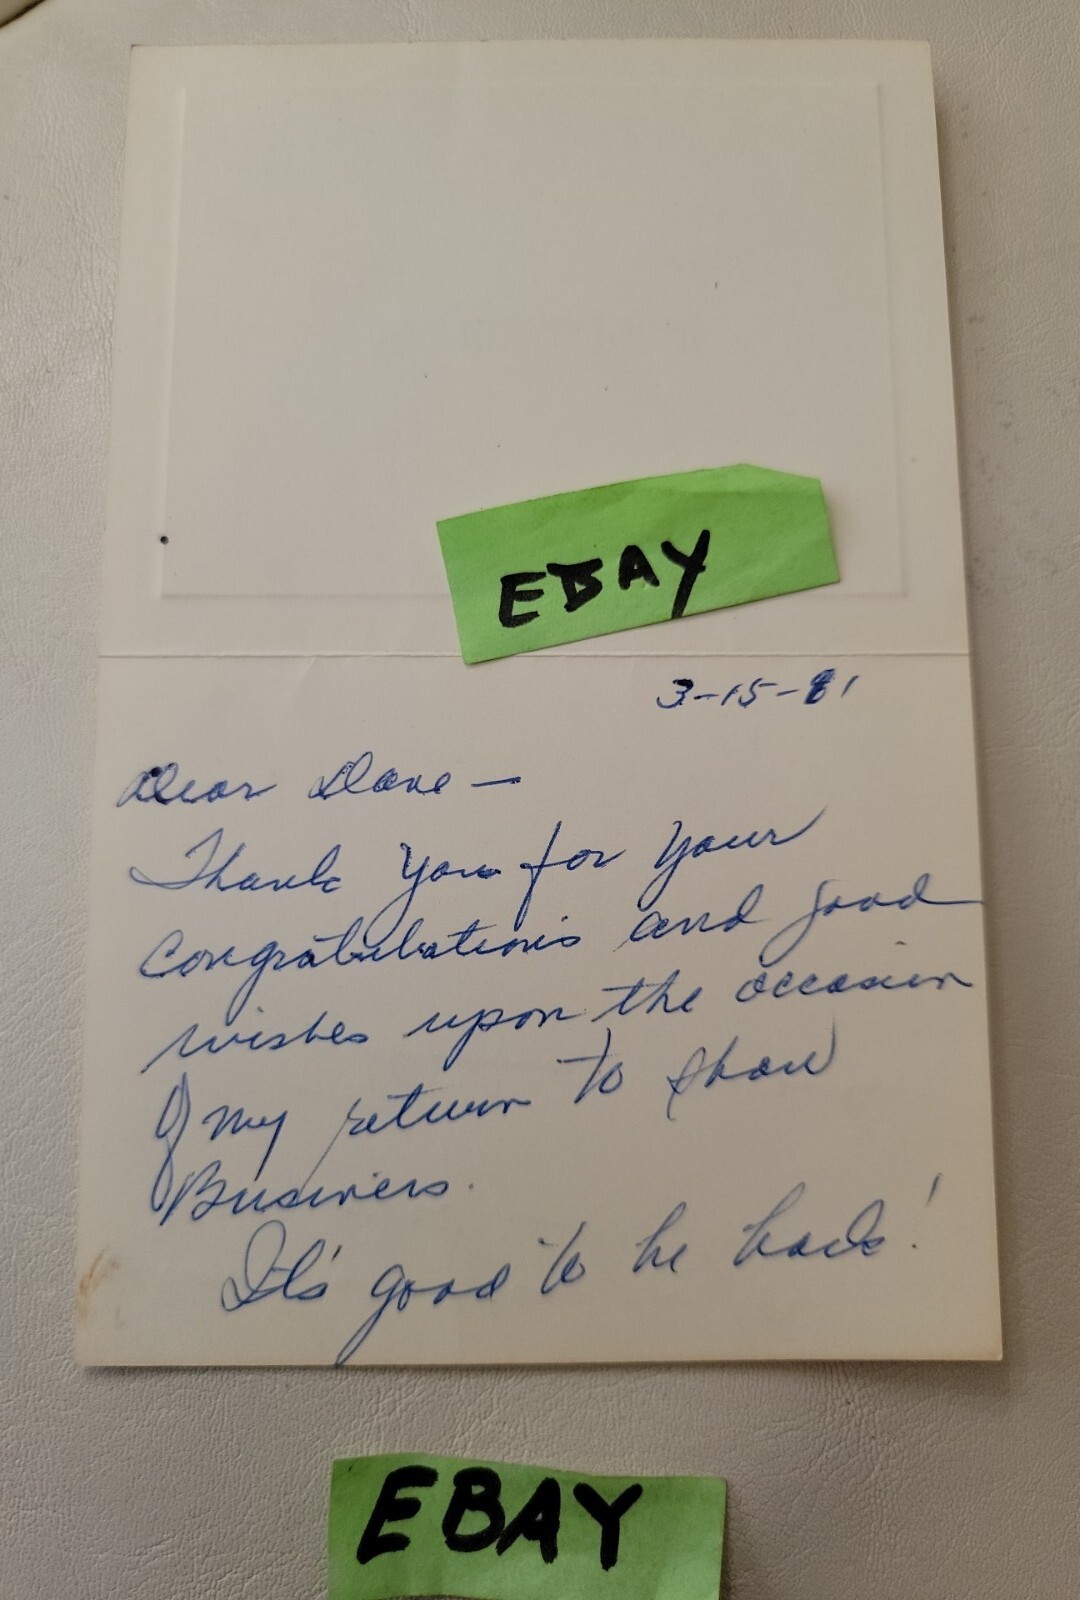 EBAY
3-15-81
Dear Dave —
Thank you for your
congratulations and good
wishes upon the occasion
of my return to show
Business.
It's good to be back!
EBAY